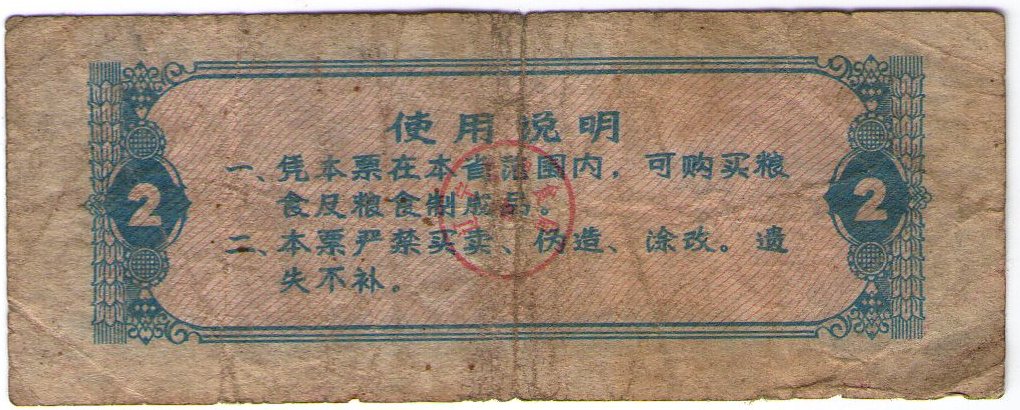 使用说明
一、凭本票在本省范围内，可购买粮
食及粮食制成品。
二、本票严禁买卖、伪造、涂改。遗
失不补。
2
2